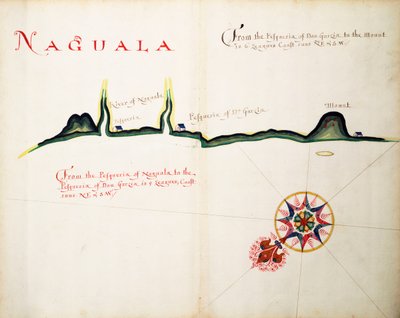 NAGUALA
From the Pesqueria of Don Garzia to the Mount
is 6 Leagues Coast runs N.E. & S.W.
River of Naguala
Pesqueria
Pesqueria of Dn Garzia
Mount
From the Pesqueria of Naguala to the
Pesqueria of Don Garzia is 5 Leagues, Coast
runs N.E. & S.W.